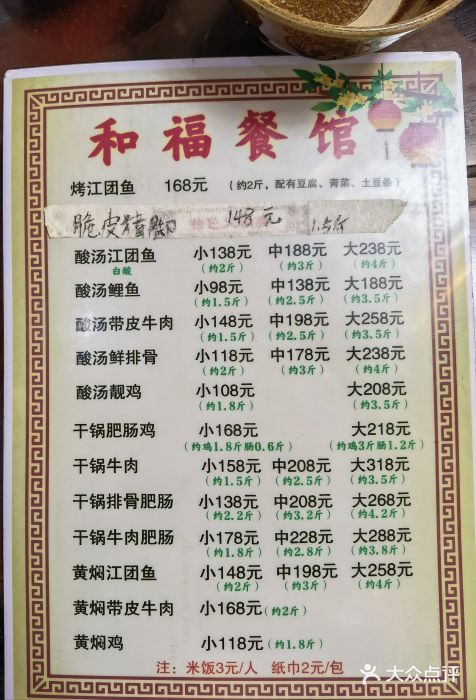 和福餐馆
烤江团鱼 168元 (约2斤，配有豆腐、青菜、土豆条)
脆皮猪脚 148元 1.5斤
酸汤江团鱼 小138元 中188元 大238元
白酸 (约2斤) (约3斤) (约4斤)
酸汤鲤鱼 小98元 中138元 大188元
(约1.5斤) (约2.5斤) (约3.5斤)
酸汤带皮牛肉 小148元 中198元 大258元
(约1.5斤) (约2.5斤) (约3.5斤)
酸汤鲜排骨 小118元 中178元 大238元
(约2斤) (约3斤) (约4斤)
酸汤靓鸡 小108元 大208元
(约1.8斤) (约3.5斤)
干锅肥肠鸡 小168元 大218元
(约鸡1.8斤肠0.6斤) (约鸡3斤肠1.2斤)
干锅牛肉 小158元 中208元 大318元
(约1.5斤) (约2.5斤) (约3.5斤)
干锅排骨肥肠 小138元 中208元 大268元
(约2.2斤) (约3.2斤) (约4.2斤)
干锅牛肉肥肠 小178元 中228元 大288元
(约1.8斤) (约2.8斤) (约3.8斤)
黄焖江团鱼 小148元 中198元 大258元
(约2斤) (约3斤) (约4斤)
黄焖带皮牛肉 小168元(约2斤)
黄焖鸡 小118元(约1.8斤)
注：米饭3元/人 纸巾2元/包
大众点评